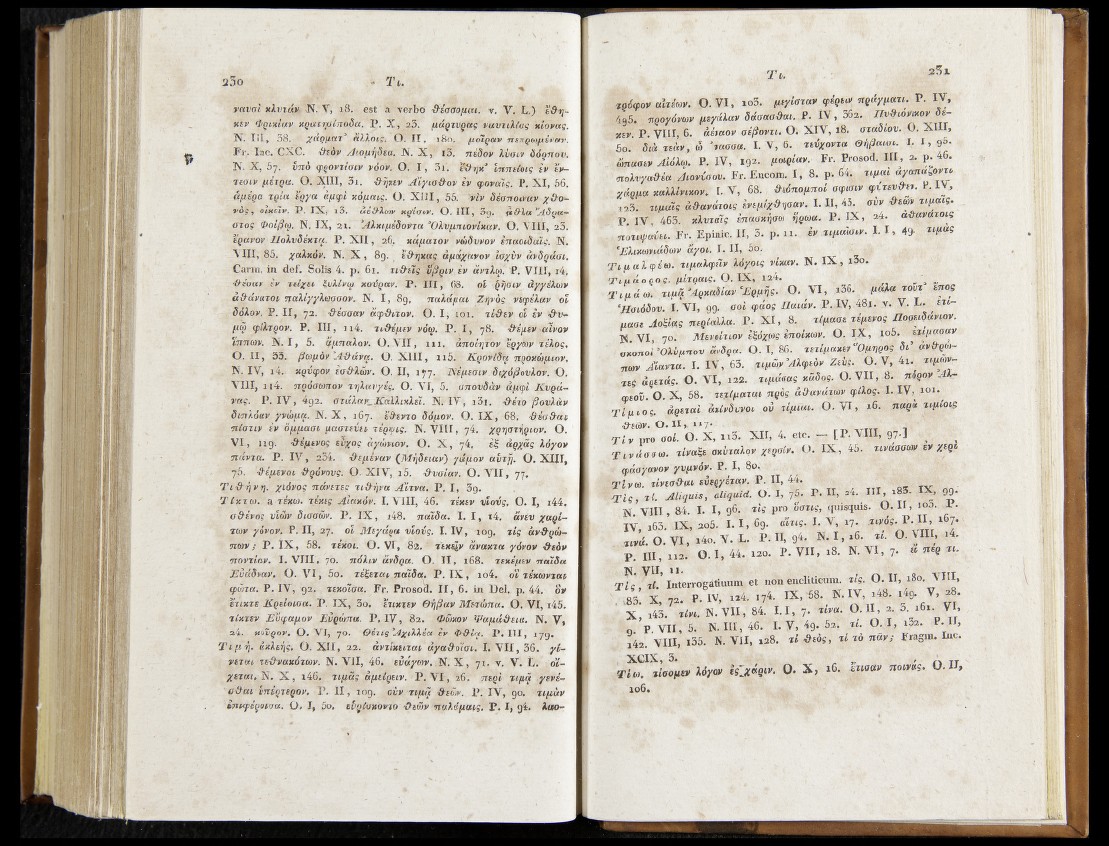 230 Τι.
ναυσὶ κλυτάν N. V, 18. est a verbo θέσσομαι. v. V. L.) ἔθη-
κεν Φρικίαν P. X, 23. μάρτυρας ναυτιλίας κίονας.
N. III, 38. χάρματ᾽ ἄλλοις. O. II, 180. μοῖραν
Fr. Inc. CXC. θεὸν Διομήδεα. N. X, 13. πέδον λῦσιν δόρπου.
N. X, 57. ὑπὸ φροντίσιν νόον. O. I, 31. ἔθηκ᾽ ἱππείοις ἐν ἔν-
τεσιν μέτρα. O. XIII, 31. θῆκεν Αἰγισθον ἐν φοναῖς. P. XI, 56.
ἁμέρᾳ τρία ἔργα ἀμφὶ κόμαις. O. XIII, 55. νὶν δέσποιναν χθο-
νός, οἰκεῖν. P. IX, 13. ἀέθλων κρίσιν. O. III, 39. ἄθλα Ἀδρα-
στος Φοίβῳ. N. IX, 21. Ἀλκιμέδοντα Ὀλυμπιονίκαν. O. VIII, 23.
ἔρανον Πολυδέκτᾳ. P. XII, 26. κάματον νώδυνον ἐπαοιδαῖς. N.
VIII, 85. χαλκόν. N. X, 89. ἔθηκας ἀμάχανον ἰσχὺν ἀνδράσι.
Carm. in def. Solis 4. p. 61. τιθεῖς ὕβριν ἐν ἄντλῳ. P. VIII, 14.
θέσαν ἐν τείχει ξυλίνῳ κούραν. P. III, 68. οἱ ῥῆσιν ἀγγέλων
ἀθάνατοι παλίγγλωσσον. N. I, 89. παλάμαι Ζηνὸς νεφέλαν οἷ
δόλον. P. II, 72. θέσσαν ἄφθιτον. O. I, 101. τίθεν οἱ ἐν θυ-
μῷ φίλτρον. P. III, 114. τιθέμεν νόῳ. P. I, 78. θέμεν αἶνον
ἵππων. N. I, 5. ἄμπαλον. O. VII, 111. ἀποίητον ἔργων τέλος.
O. II, 33. βωμὸν Ἀθάνᾳ. O. XIII, 115. Κρονίδᾳ προκώμιον.
N. IV, 14. κρύφον ἐσθλῶν. O. II, 177. Νέμεσιν διχόβουλον. O.
VIII, 114. πρόσωπον τηλαυγές. O. VI, 5. σπουδὰν ἀμφὶ Κυρά-
νας. P. IV, 492. στάλαν Καλλικλεῖ. N. IV, 131. θέτο βουλὰν
διπλόαν γνώμᾳ. N. X, 167. ἔθεντο δόμον. O. IX, 68. θέσθαι
πίστιν ἐν ὄμμασι μαστεύει τέρψις. N. VIII, 74. χρηστήριον. O.
VI, 119. θέμενος εὖχος ἀγώνιον. O. X, 74. ἐξ ἀρχᾶς λόγον
πάντα. P. IV, 234. θεμέναν (Μήδειαν) γάμον αὐτῇ. O. XIII,
75. θέμενοι θρόνους. O. XIV, 15. θυσίαν. O. VII, 77.
Τιθήνη. χιόνος πάνετες τιθήνα Αἴτνα. P. I, 39.
Τίκτω. a τέκω. τέκες Αἰακόν. I. VIII, 46. τέκεν υἱούς. O. I, 144.
σθένος υἱῶν δισσῶν. P. IX, 148. παῖδα. I. I, 14. ἄνευ χαρί-
των γόνον. P. II, 27. οἱ Μεγάρα υἱούς. I. IV, 109. τίς ἀνθρώ-
πων; P. IX, 58. τέκοι. O. VI, 82. τεκεῖν ἄνακτα γόνον θεὸν
ποντίαν. I. VIII, 70. πόλιν ἄνδρα. O. II, 168. τεκέμεν παῖδα
Εὐάδναν. O. VI, 50. τέξεται παῖδα. P. IX, 104. οἱ τέκωνται
φῶτα. P. IV, 92. τεκοῖσα. Fr. Prosod. II, 6. in Del. p. 44. ὃν
ἔτικτε Κρείοισα. P. IX, 30. ἔτικτεν Θήβαν Μετώπα. O. VI, 145.
τίκτεν Εὔφαμον Εὐρώπα. P. IV, 82. Φῶκον Ψαμάθεια. N. V,
24. κοῦρον. O. VI, 70. Θέτις Ἀχιλλέα ἐν Φθίᾳ. P. III, 179.
Τιμή. ἀκλεής. O. XII, 22. ἀντίκειται ἀγαθοῖσι. I. VII, 36. γί-
νεται τεθνακότων. N. VII, 46. εὐάγων. N. X, 71. v. V. L. οἴ-
χεται. N. X, 146. τιμᾶς ἀμείρειν. P. VI, 26. περὶ τιμᾷ γενέ-
σθαι ὑπέρτερον. P. II, 109. σὺν τιμᾷ θεῶν. P. IV, 90. τιμὰν
ἐπιφέροισα. O. I, 50. εὑρίσκοντο θεῶν παλάμαις. P. I, 94. λαο-
Τι. 231
τρόφον αἰτέων. O. VI, 103. μεγίσταν φέρειν πράγματι. P. IV,
495. προγόνων μεγάλαν δάσασθαι. P. IV, 362. Πυθιόνικον δέ-
κεν. P. VIII, 6. ἀέναον σέβοντι. O. XIV, 18. σταδίου. O. XIII,
50. διὰ τεὰν, ὦ ἄνασσα. I. V, 6. τεύχοντα Θήβαισι. I. I, 95.
ὤπασεν Αἰόλῳ. P. IV, 192. μοιρίαν. Fr. Prosod. III, 2. p. 46.
πολυγαθέα Διονύσου. Fr. Encom. I, 8. p. 64. τιμαὶ ἀγαπάζοντι
χάρμα καλλίνικον. I. V, 68. θεόπομποί σφισιν φύτευθεν. P. IV,
123. τιμαῖς ἀθανάτοις ἐνεμίχθησαν. I. II, 43. σὺν θεῶν τιμαῖς.
P. IV, 463. κλυταῖς ἐπασκήσω ἥρωα. P. IX, 24. ἀθανάτοις
ποτιψαύει. Fr. Epinic. II, 3. p. 11. ἐν τιμαῖσιν. I. I, 49. τιμὰς
Ἑλικωνιάδων ἄγοι. I. II, 50.
Τιμαλφέω. τιμαλφεῖν λόγοις νίκαν. N. IX, 130.
Τιμάορος. μίτραις. O. IX, 124.
Τιμάω. τιμᾷ Ἀρκαδίαν Ἑρμῆς. O. VI, 136. μάλα τοῦτ᾽ ἔπος
Ἡσιόδου. I. VI, 99. σοὶ φάος Παιάν. P. IV, 481. v. V. L. ἐτί-
μασε Λοξίας περίαλλα. P. XI, 8. τίμασε τέμενος Ποσειδάνιον.
N. VI, 70. Μενοίτιον ἐξόχως ἐποίκων. O. IX, 105. ἐτίμασαν
σκοποὶ Ὀλύμπου ἄνδρα. O. I, 86. τετίμακεν Ὅμηρος δι᾽ ἀνθρώ-
πων Αἴαντα. I. IV, 63. τιμῶν Ἀλφεὸν Ζεύς. O. V, 41. τιμῶν-
τες ἀρετάς. O. VI, 122. τιμάσας κᾶδος. O. VII, 8. πόρον Ἀλ-
φεοῦ. O. X, 58. τετίμαται πρὸς ἀθανάτων φίλος. I. IV, 101.
Τίμιος. ἀρεταὶ ἀκίνδυνοι οὐ τίμιαι. O. VI, 16. παρὰ τιμίοις
θεῶν. O. II, 117.
Τίν pro σοί. O. X, 113. XII, 4. etc. — [P. VIII, 97.]
Τινάσσω. τίναξε σκύταλον χερσίν. O. IX, 45. τινάσσων ἐν χερὶ
φάσγανον γυμνόν. P. I, 80.
Τίνω. τίνεσθαι εὐεργέταν. P. II, 44.
Τὶς, τὶ. Aliquis, aliquid. O. I, 75. P. II, 24. III, 183. IX, 99.
N. VIII, 84. I. I, 96. τὶς pro ὅστις, quisquis. O. II, 103. P.
IV, 163. IX, 205. I. I, 69. αἴτις. I. V, 17. τινός. P. II, 167.
τινά. O. VI, 140. V. L. P. II, 94. N. I, 16. τί. O. VIII, 14.
P. III, 112. O. I, 44. 120. P. VII, 18. N. VI, 7. εἰ πέρ τι.
N. VII, 11.
Τίς, τί. Interrogativum et non encliticum. τίς. O. II, 180. VIII,
83. X, 72. P. IV, 124. 174. IX, 58. N. IV, 148. 149. V, 28.
X, 143. τίνι. N. VII, 84. I. I, 7. τίνα. O. II, 2. 3. 161. VI,
9. P. VII, 5. N. III, 46. I. V, 49. 52. τί. O. I, 132. P. II,
142. VIII, 135. N. VII, 128. τί θεός, τί τὸ πᾶν; Fragm. Inc.
XCIX, 3.
Τίω. τίσομεν λόγον ἐς χάριν. O. X, 16. ἔτισαν ποινάς. O. II,
106.